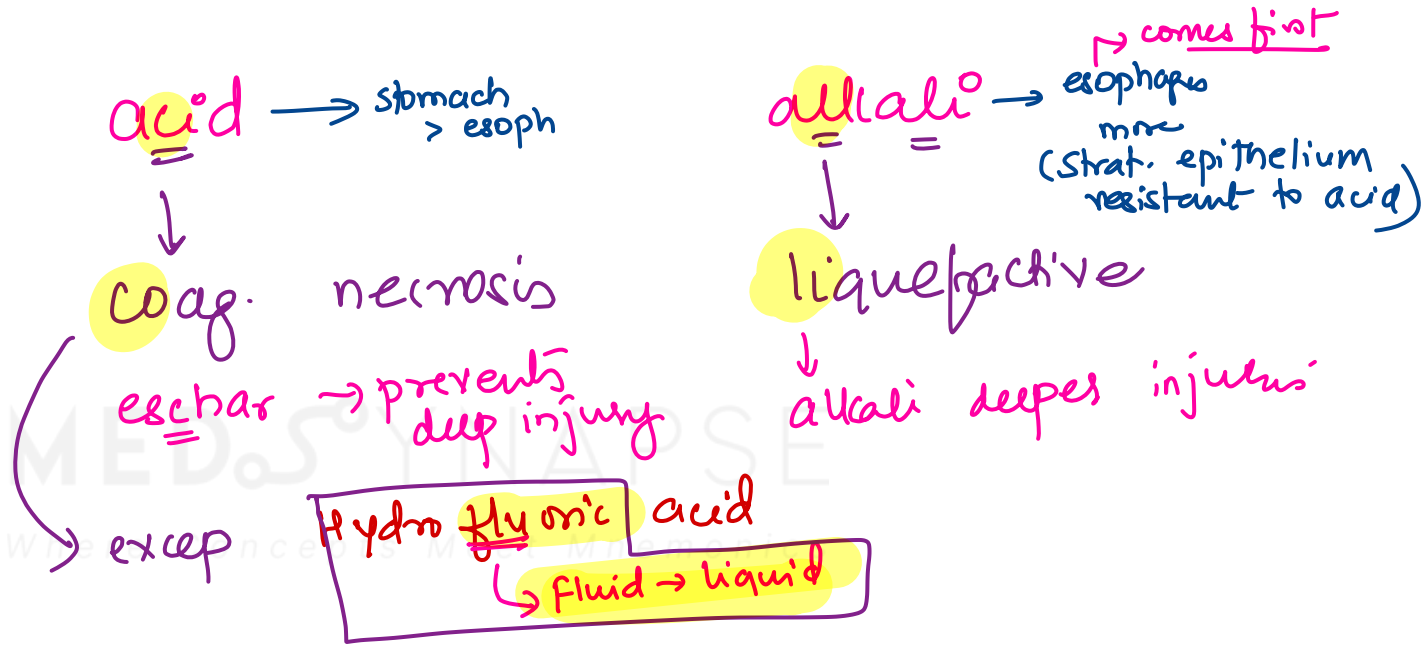 acid → stomach
> esoph
coag. necrosis
eschar → prevents
deep injury
excep
Hydro fluoric acid
fluid → liquid
comes first
alkali → esophages
more
(strat. epithelium
resistant to acid)
liquefactive
alkali deeper injuries
MEDSYNAPSE